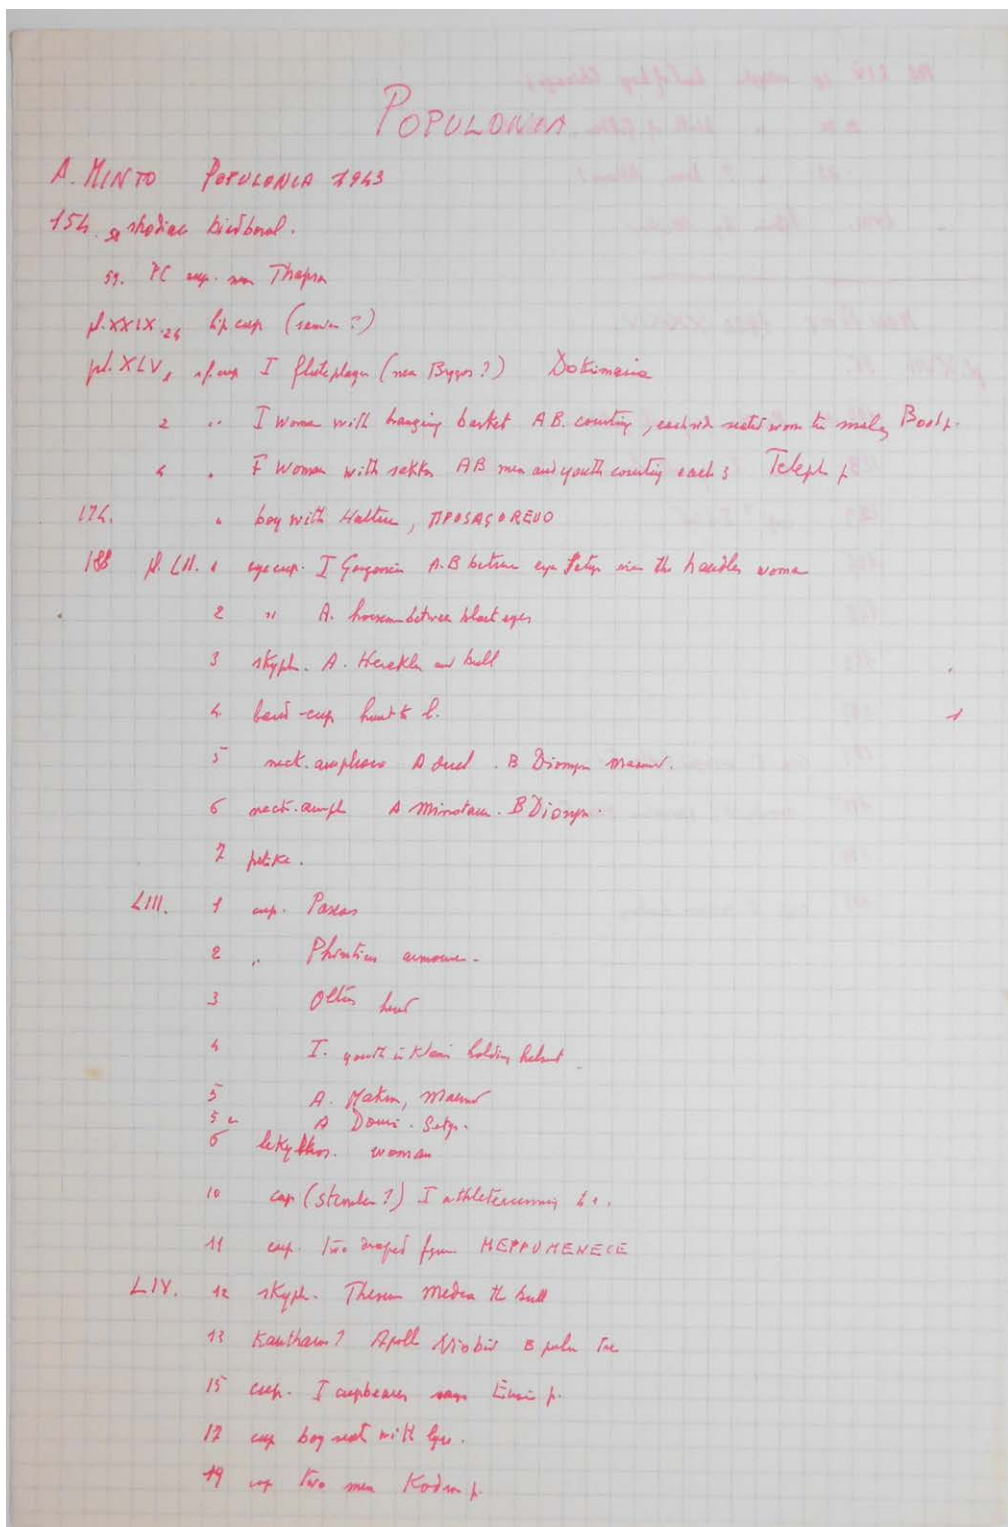 POPULONIA
A. MINTO POPULONIA 1943
154. rhodian birdbowl.
59. PC cup.
pl. XXIX. 24 lip cup
pl. XLV, 1 rf. cup I flute player (near Brygos?) Dokimasia
2 " I Woman with hanging basket A B. courting, each side seated woman Boot p.
4 " I Woman with sakkos AB men and youth courting each 3 Teleph p
174. " boy with Halter, ΠPOSAGOREUO
188 pl. LII. 1 eyecup. I Gorgoneion A.B between eyes Satyr the handles woman
2 " A. horseman between black eyes
3 skyph. A. Herakles and bull
4 band-cup
5 neck. amphora A duel. B Dionysos maenad.
6 neck. amph A Minotaur. B Dionysos.
7 pelike.
LIII. 1 cup. Paseas
2 " Phintias armourer.
3 Oltos head
4 I. youth holding helmet
5 A. maenad
5 A Satyr.
6 lekythos. woman
10 cup I athlete running
11 cup. two draped figures
LIV. 12 skyph. Theseus Medea the bull
13 Kantharos? Apollo Niobid B
15 cup. I cupbearer p.
17 cup boy seat with lyre.
19 cup two men Kodros p.
1